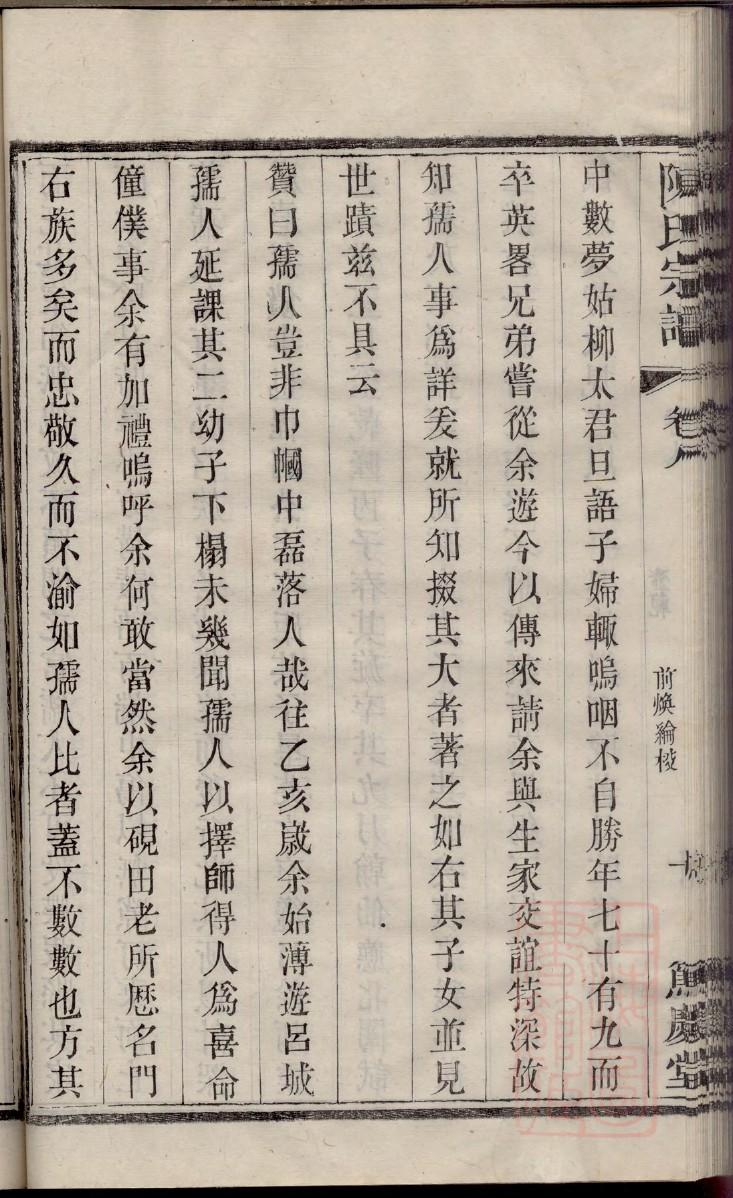 陳氏宗譜
卷八
前煥綸校
中數夢姑柳太君旦語子婦輒嗚咽不自勝年七十有九而
卒英畧兄弟嘗從余遊今以傳來請余與生家交誼特深故
知孺人事爲詳爰就所知掇其大者著之如右其子女並見
世蹟茲不具云
贊曰孺人豈非巾幗中磊落人哉往乙亥歲余始薄遊呂城
孺人延課其二幼子下榻未幾聞孺人以擇師得人爲喜命
僮僕事余有加禮嗚呼余何敢當然余以硯田老所歷名門
右族多矣而忠敬久而不渝如孺人比者蓋不數數也方其